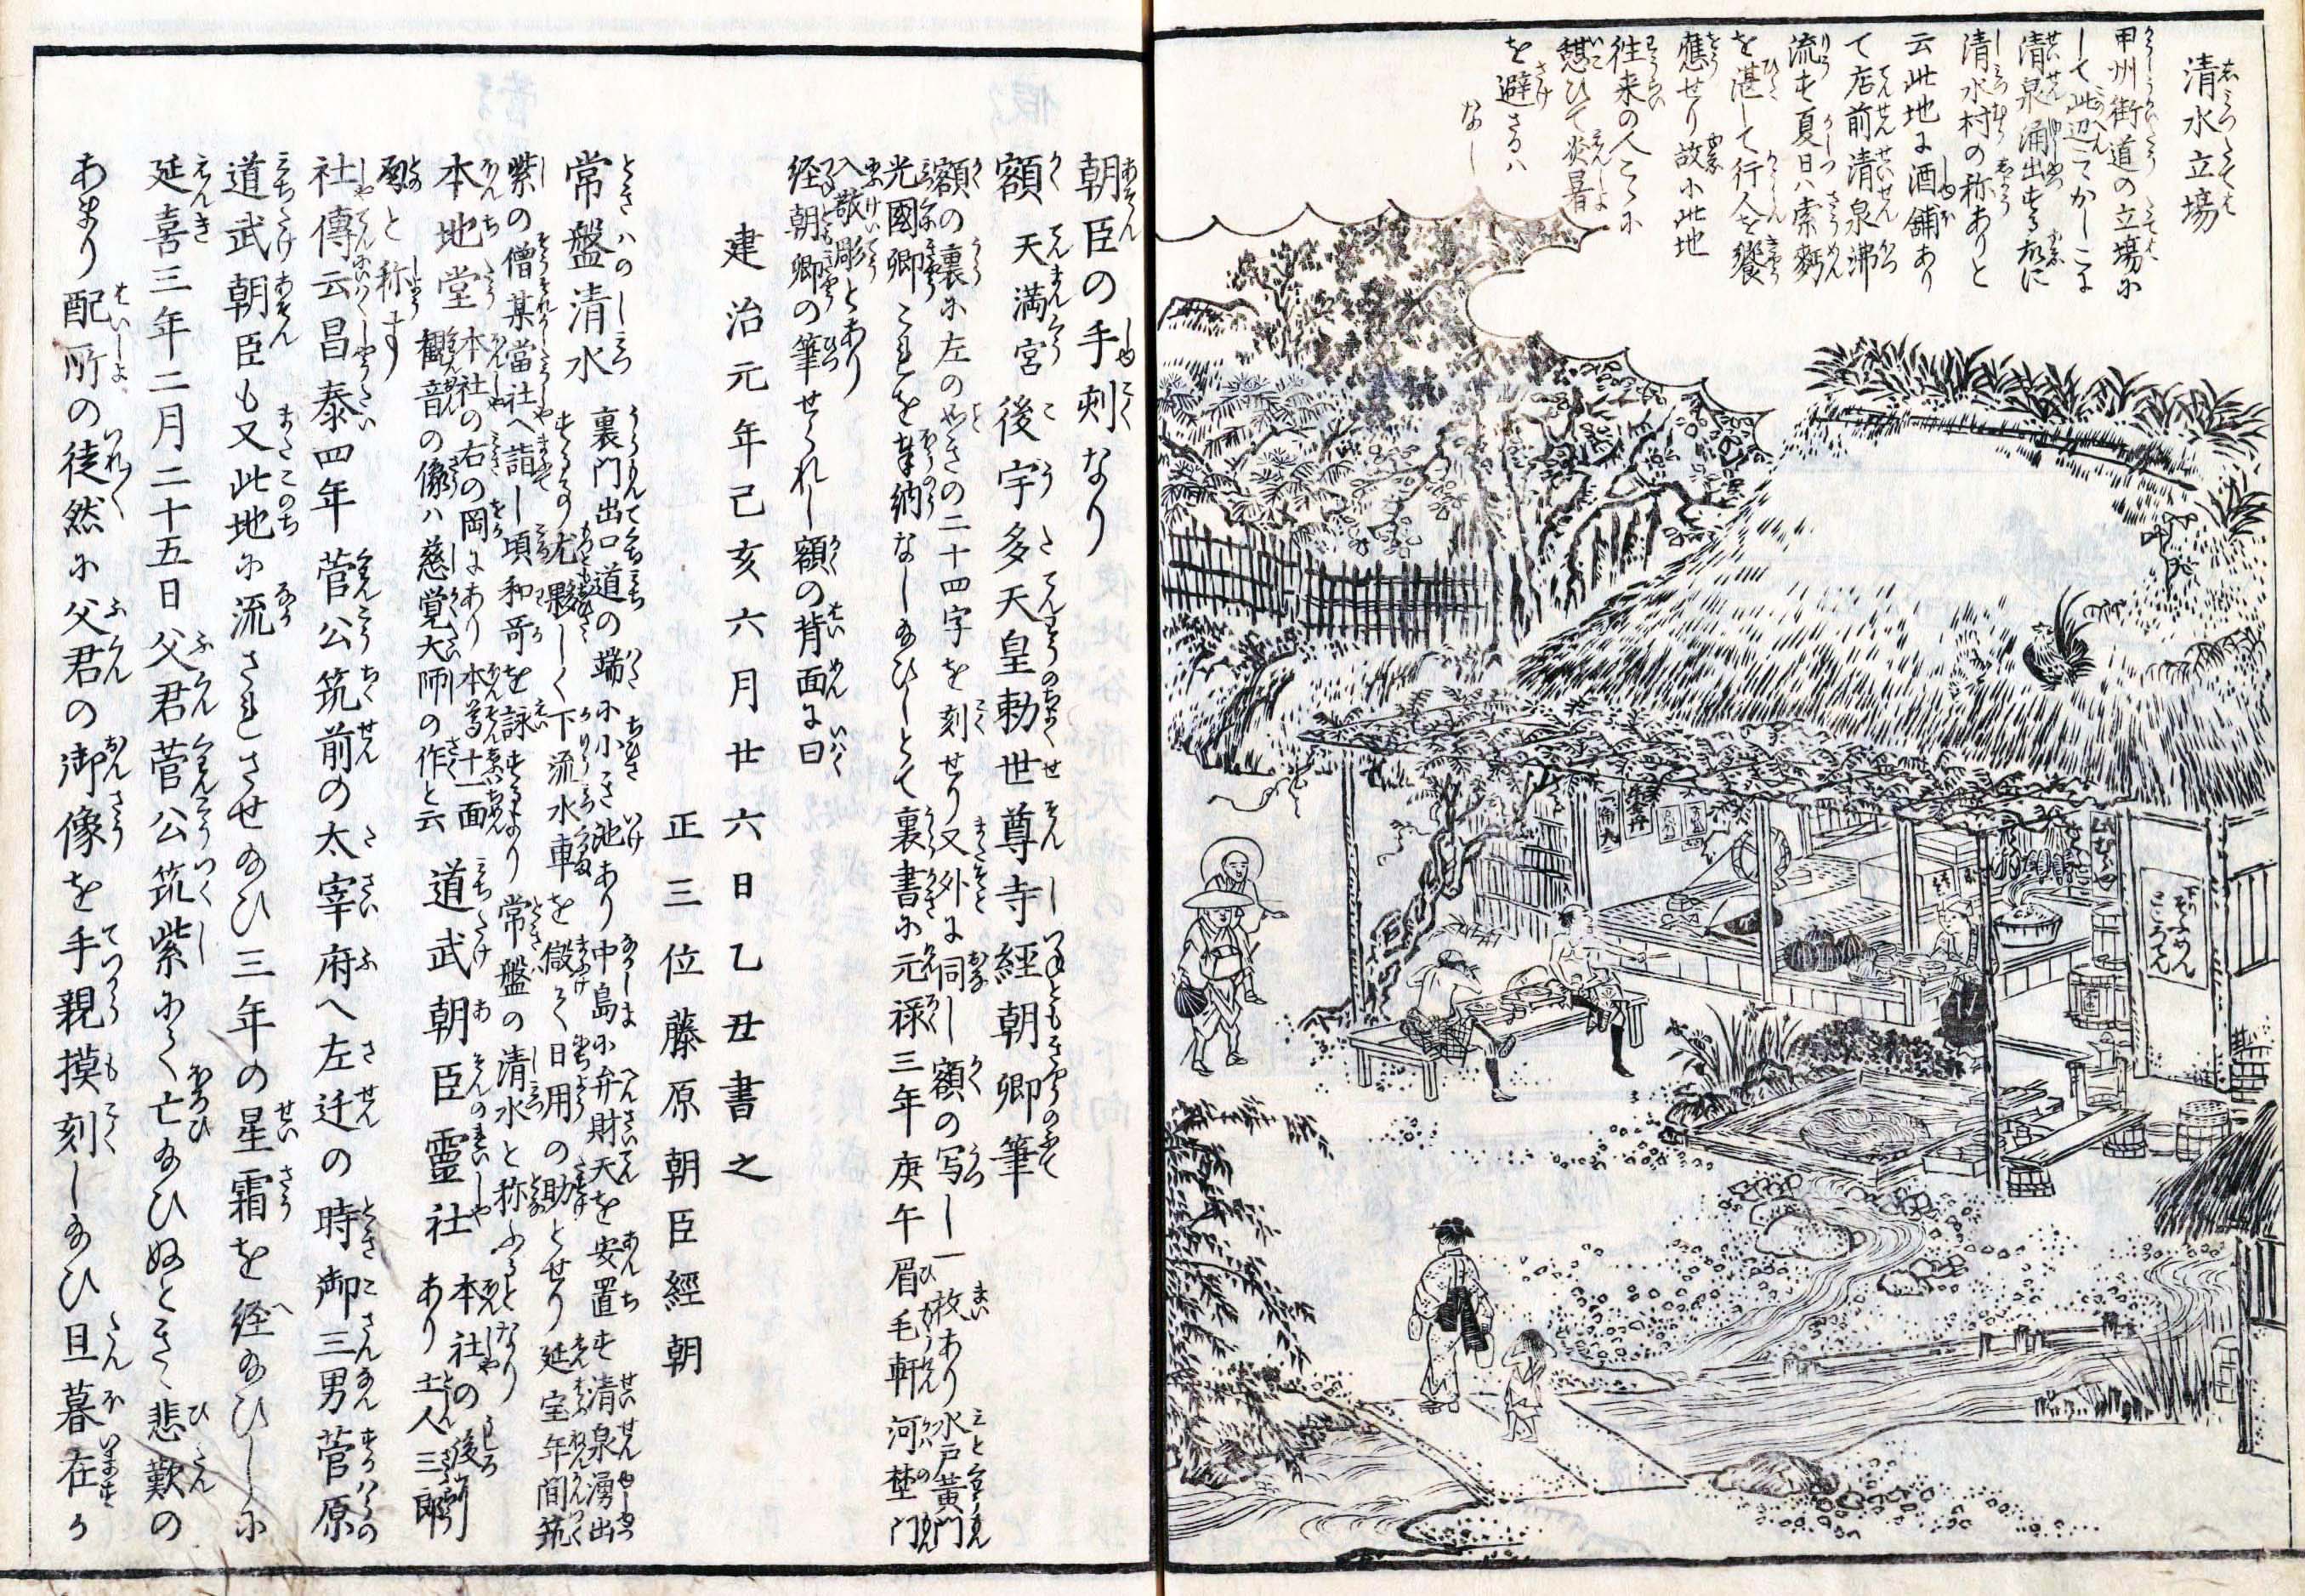 清水立場
甲州街道の立場に
して此辺こかしこに
清泉涌出する故に
清水村の称ありと
云此地に酒舗あり
て店前清泉沸
流す夏日ハ索麪
を湛して行人を饗
應せり故に此地
往来の人こゝに
憩ひて炎暑
を避さるハ
なし
朝臣の手刻なり
額 天満宮 後宇多天皇勅世尊寺経朝卿筆
額の裏に左のことき二十四字を刻せり又外に同し額の写し一枚あり水戸黄門
光國卿これを奉納なし給ひしとて裏書に元禄三年庚午眉毛軒河埜一門
入敬彫とあり
経朝卿の筆せられし額の背面に曰
建治元年己亥六月廿六日乙丑書之
正三位藤原朝臣經朝
常盤清水 裏門出口道の端に小さき池あり中島に弁財天を安置す清泉湧出
する尤夥しく下流水車を儲て日用の助とせり延宝年間筑
紫の僧某當社へ詣し頃和哥を詠するより常盤の清水と称ふるとなり
本地堂 本社の右の岡にあり本尊十一面
観音の像ハ慈覚大師の作と云
道武朝臣霊社 本社の後にあり土人三郎
殿と称す
社傳云昌泰四年菅公筑前の太宰府へ左迁の時御三男菅原
道武朝臣も又此地に流されさせ給ひ三年の星霜を経給ひしに
延喜三年二月二十五日父君菅公筑紫にて亡給ひぬときゝ悲歎の
あまり配所の徒然に父君の御像を手親摸刻し給ひ旦暮在か